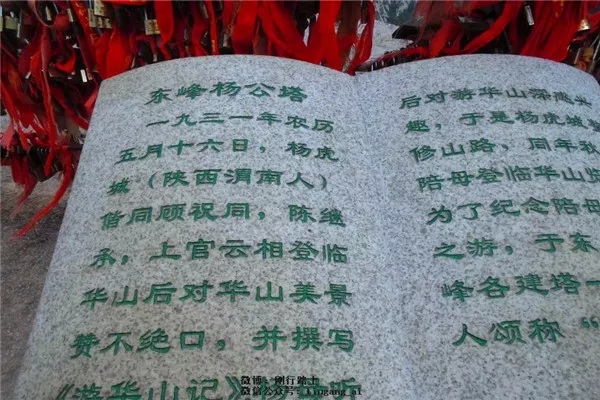 东峰杨公塔
一九三一年农历
五月十六日，杨虎
城（陕西渭南人）
偕同顾祝同，陈继
承，上官云相登临
华山后对华山美景
赞不绝口，并撰写
《游华山记》
后对游华山深感兴
趣，于是杨虎城整
修山路，同年秋
陪母登临华山
为了纪念陪母
之游，于东
峰各建塔一
人颂称“
微博：剑行路上
微信公众号：